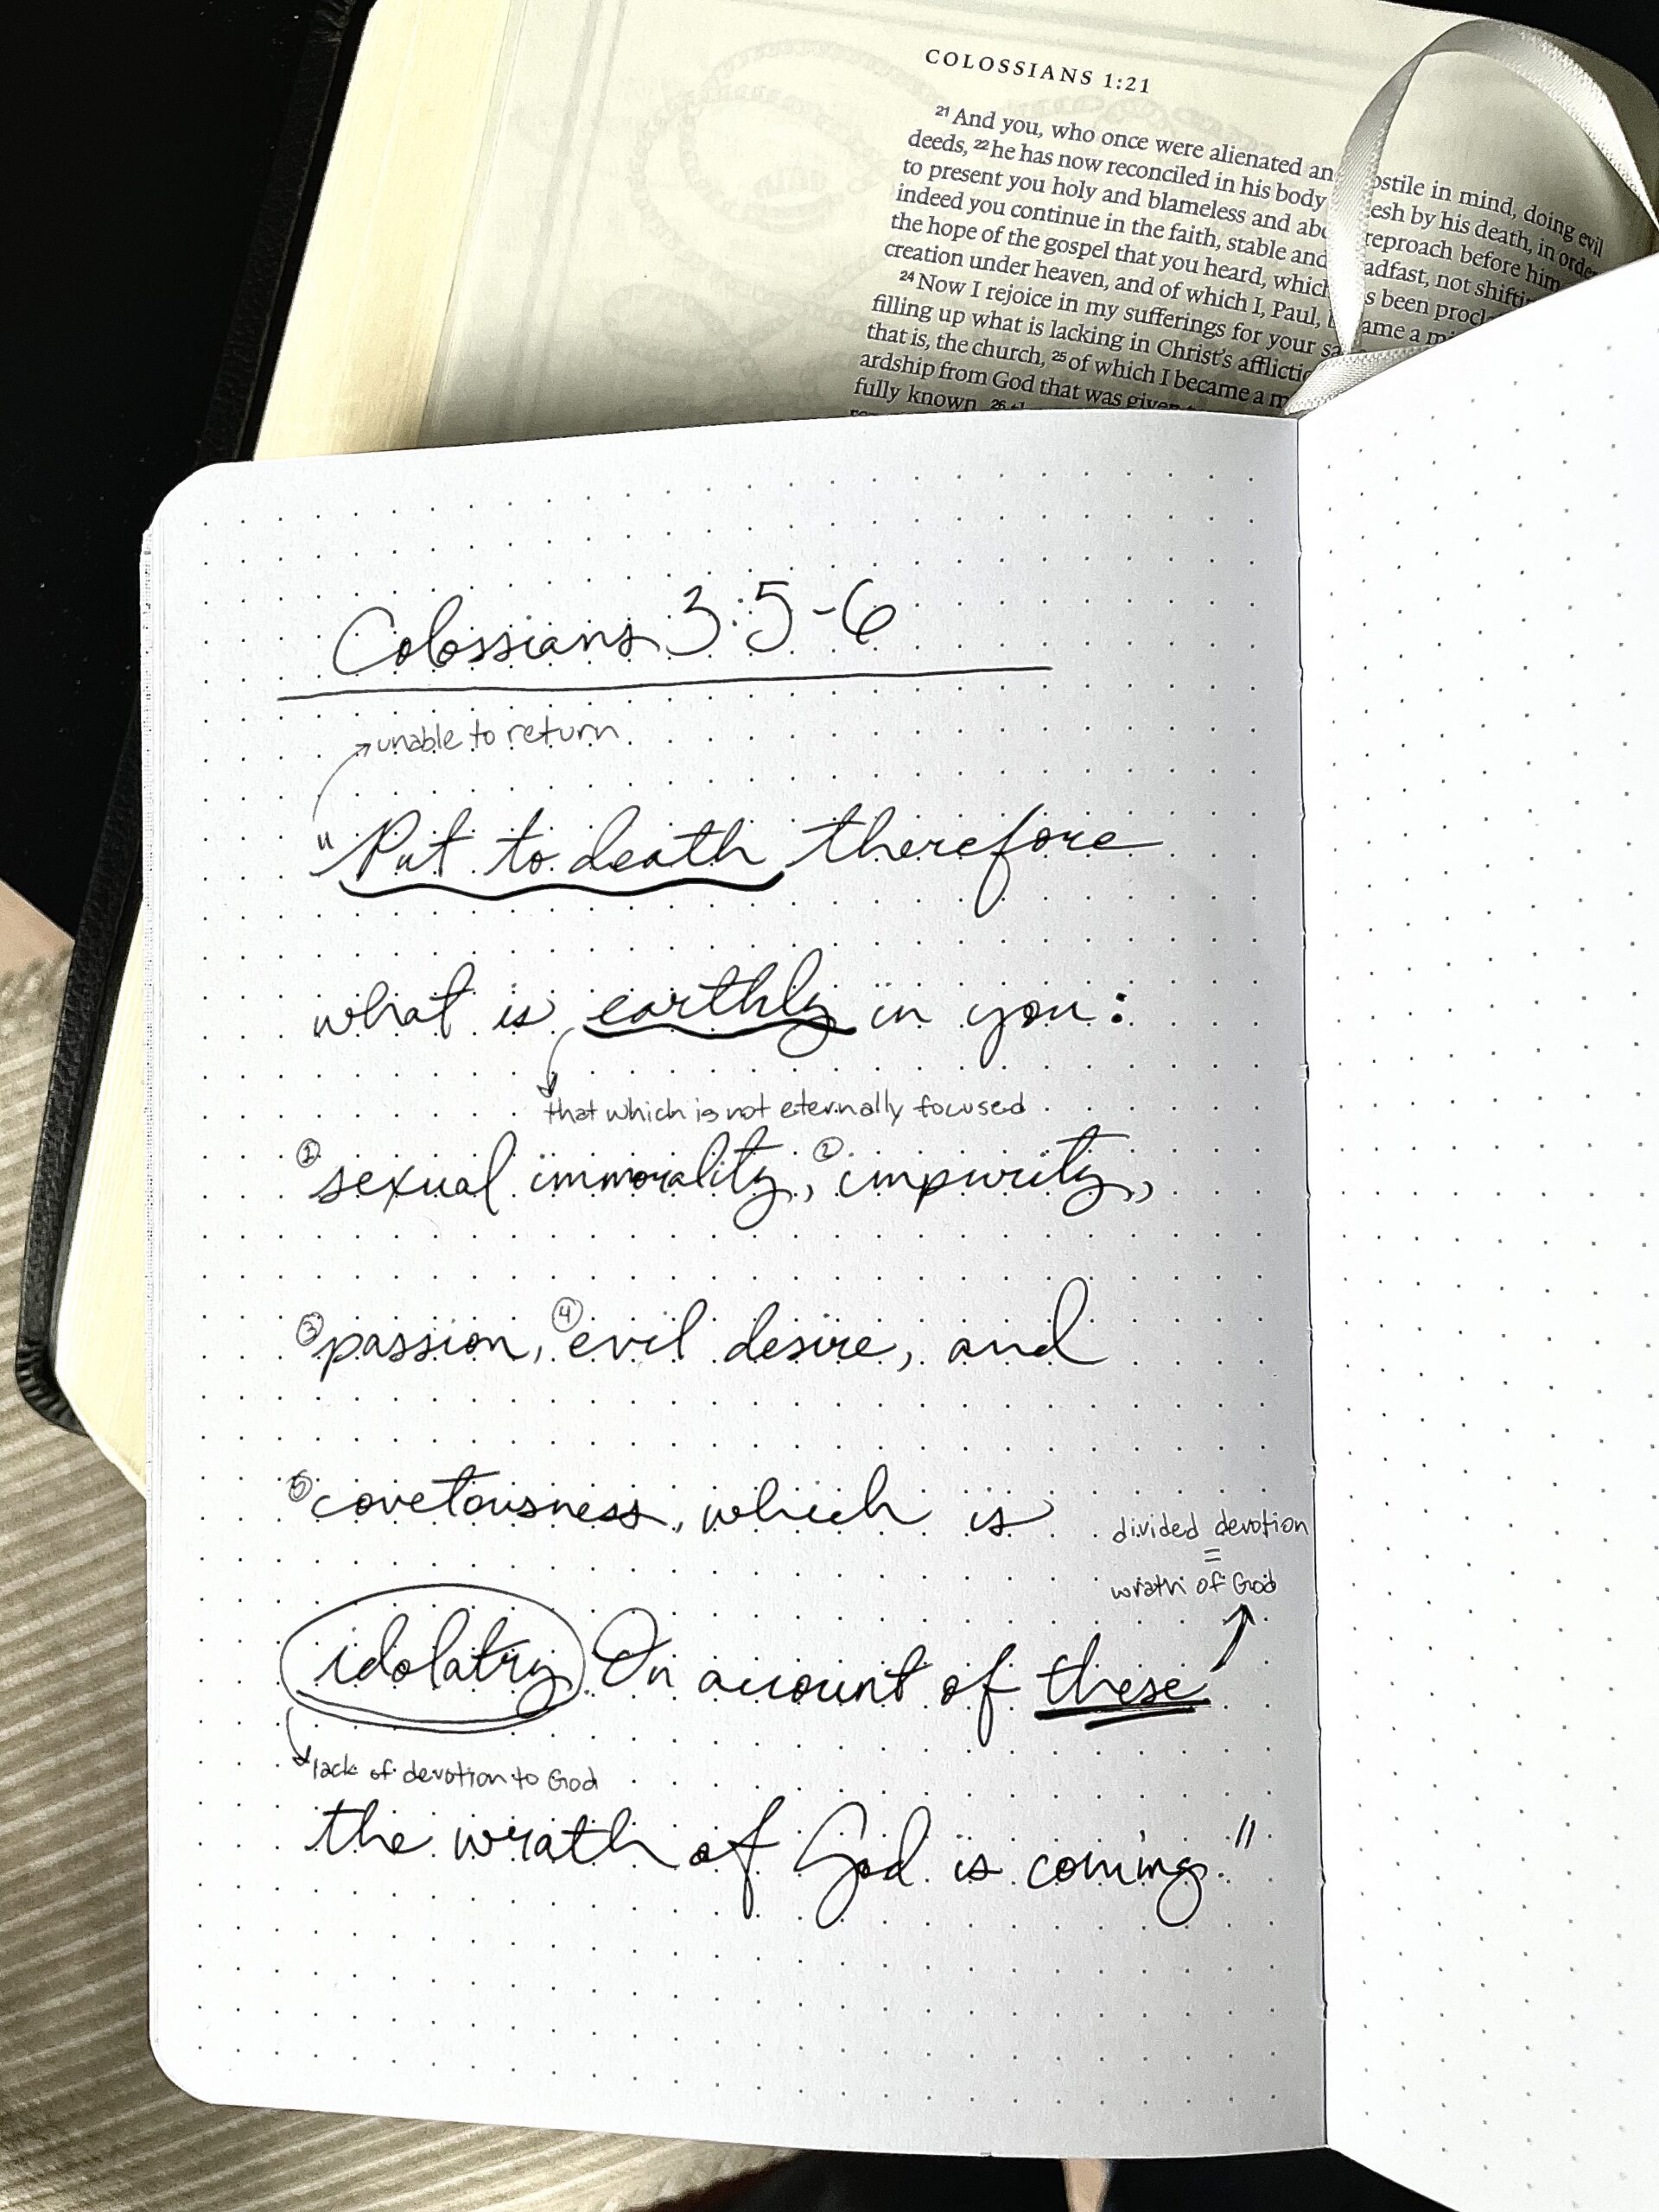 COLOSSIANS 1:21
21 And you, who once were alienated an ostile in mind, doing evil
deeds, 22 he has now reconciled in his body esh by his death, in order
to present you holy and blameless and abo reproach before him
indeed you continue in the faith, stable and adfast, not shifti
the hope of the gospel that you heard, which s been procla
creation under heaven, and of which I, Paul, ame a mi
24 Now I rejoice in my sufferings for your sa
filling up what is lacking in Christ's afflictio
that is, the church, 25 of which I became a m
ardship from God that was given
fully known 26
Colossians 3:5-6
unable to return
"Put to death therefore
what is earthly in you:
that which is not eternally focused
① sexual immorality, ② impurity,
③ passion, ④ evil desire, and
⑤ covetousness, which is
divided devotion
=
wrath of God
idolatry. On account of these
lack of devotion to God
the wrath of God is coming."